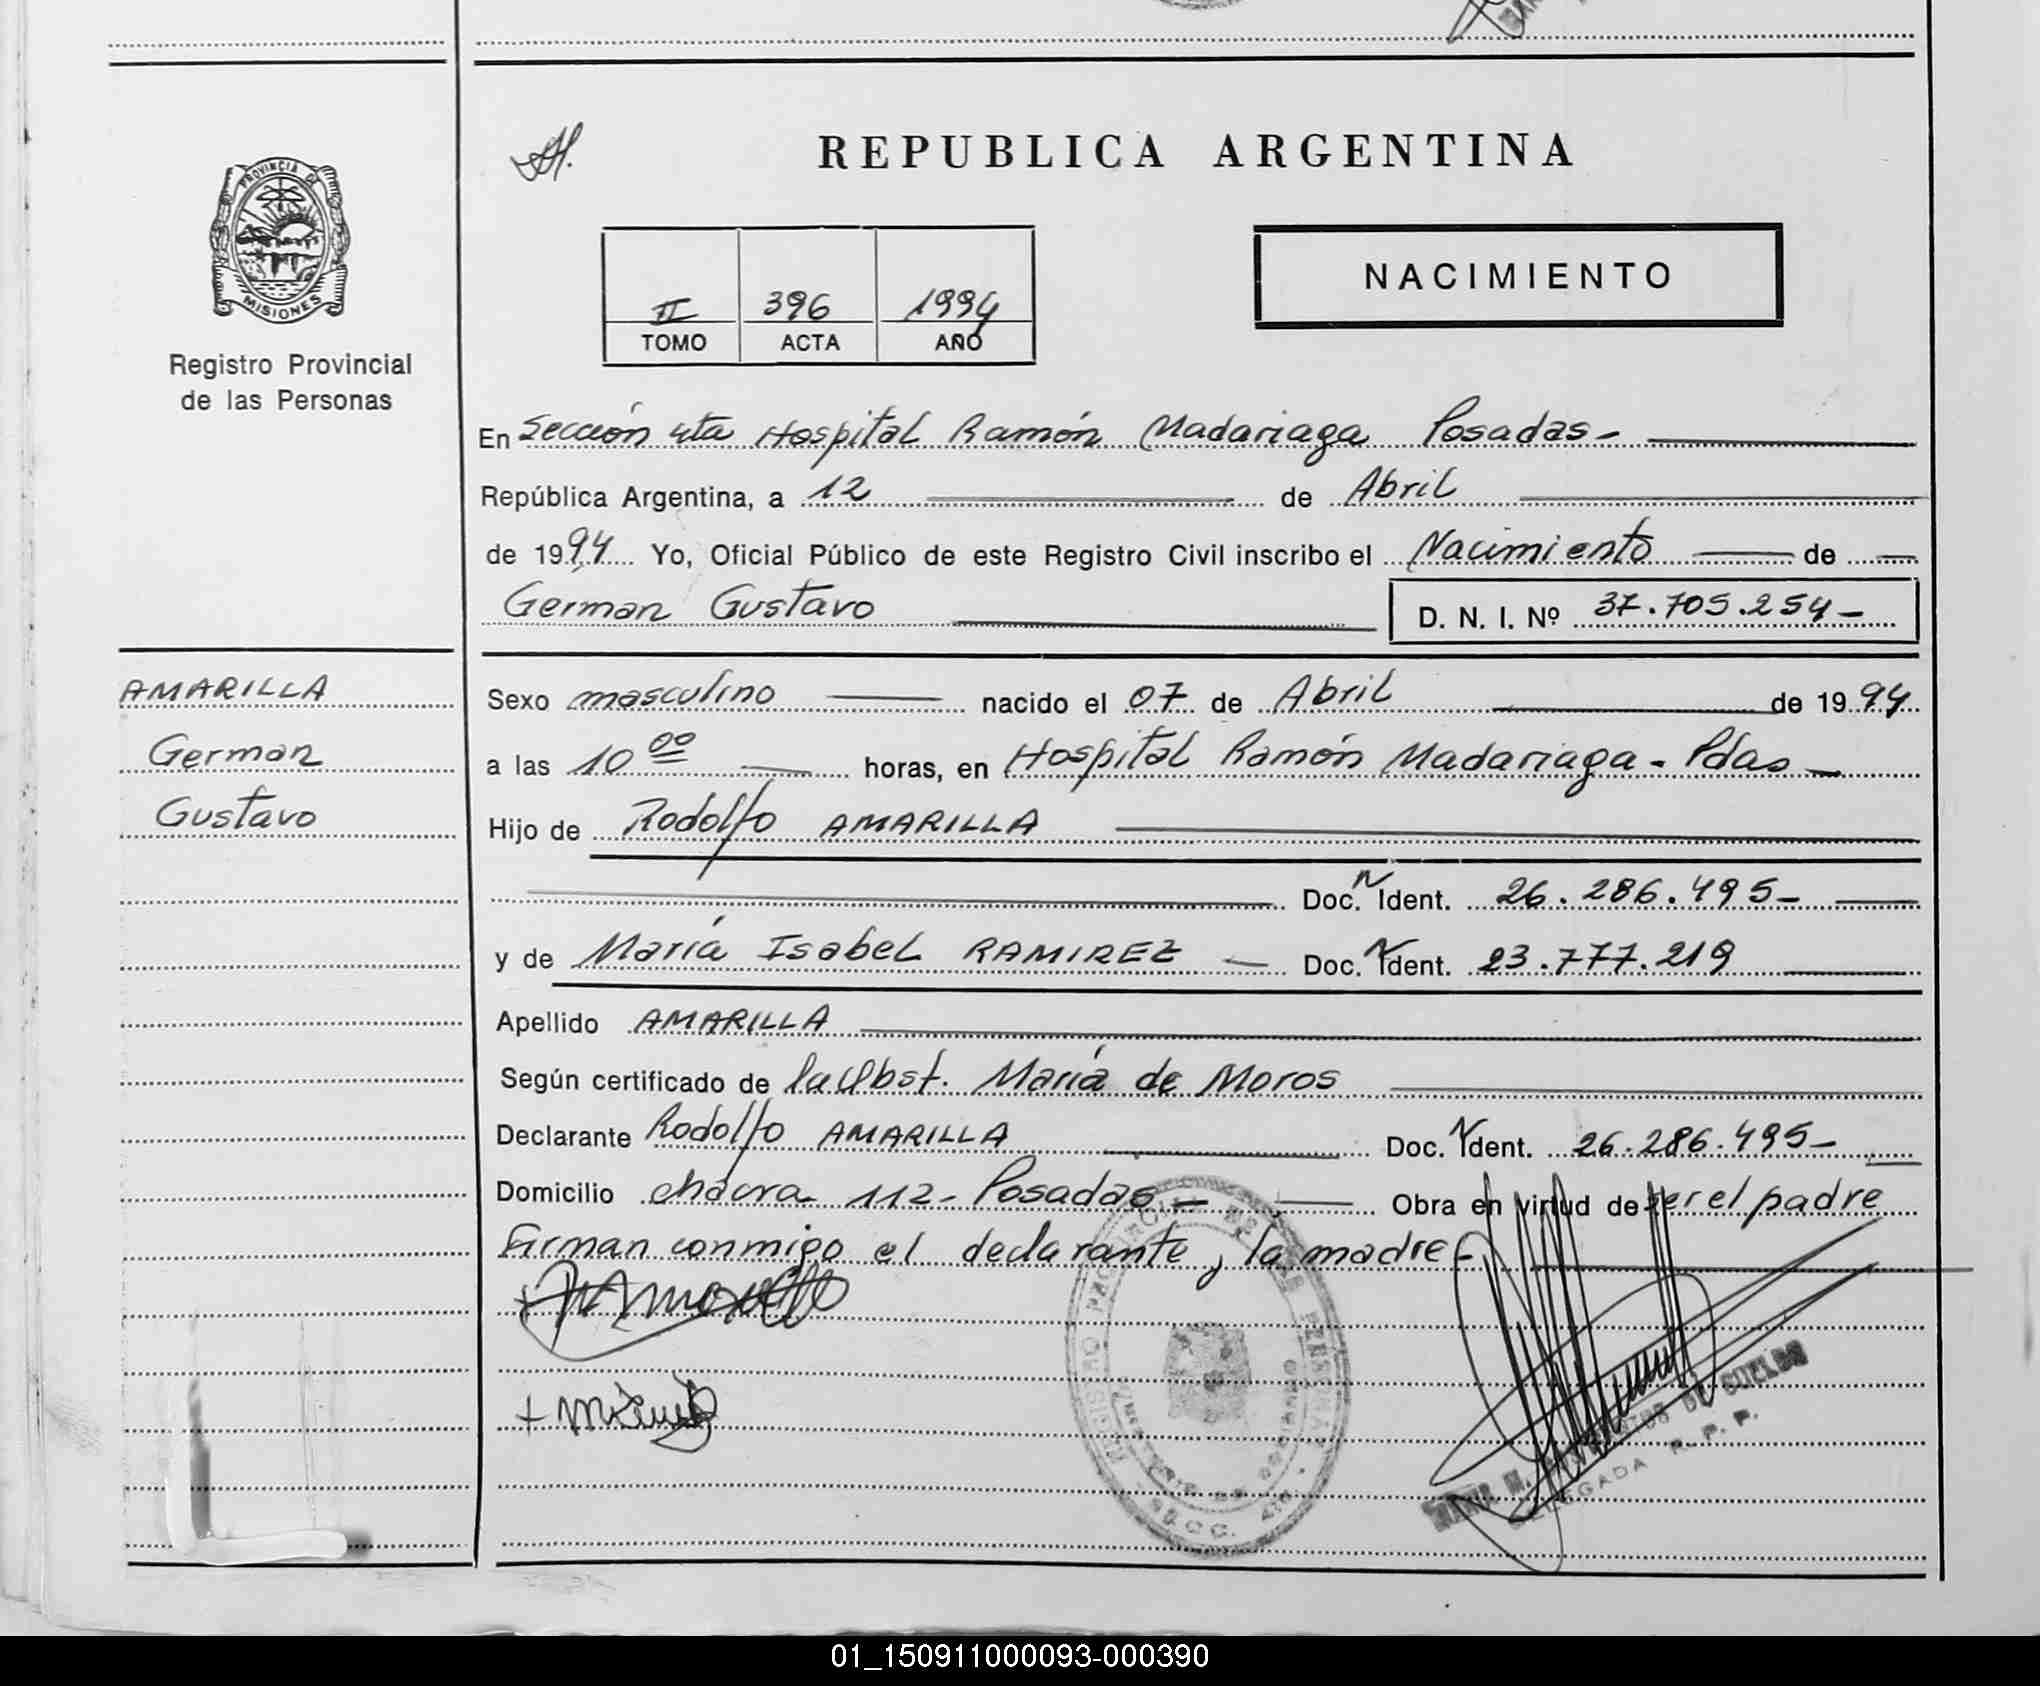 REPUBLICA ARGENTINA
PROVINCIA DE
MISIONES
Registro Provincial
de las Personas
II 396 1994
TOMO ACTA AÑO
NACIMIENTO
En Sección 4ta Hospital Ramón Madariaga Posadas-
República Argentina, a 12 de Abril
de 1994 Yo, Oficial Público de este Registro Civil inscribo el Nacimiento de
Germán Gustavo
D. N. I. Nº 37.705.254-
AMARILLA
German
Gustavo
Sexo masculino nacido el 07 de Abril de 1994
a las 10 00 horas, en Hospital Ramón Madariaga - Pdas-
Hijo de Rodolfo AMARILLA
Doc. N Ident. 26.286.495-
y de María Isabel RAMIREZ - Doc. N Ident. 23.777.219
Apellido AMARILLA
Según certificado de la Obst. María de Moros
Declarante Rodolfo AMARILLA Doc. N Ident. 26.286.495-
Domicilio chacra 112- Posadas- Obra en virtud de ser el padre
Firman conmigo el declarante y la madre-
DELEGADA R. P. P.
01_150911000093-000390